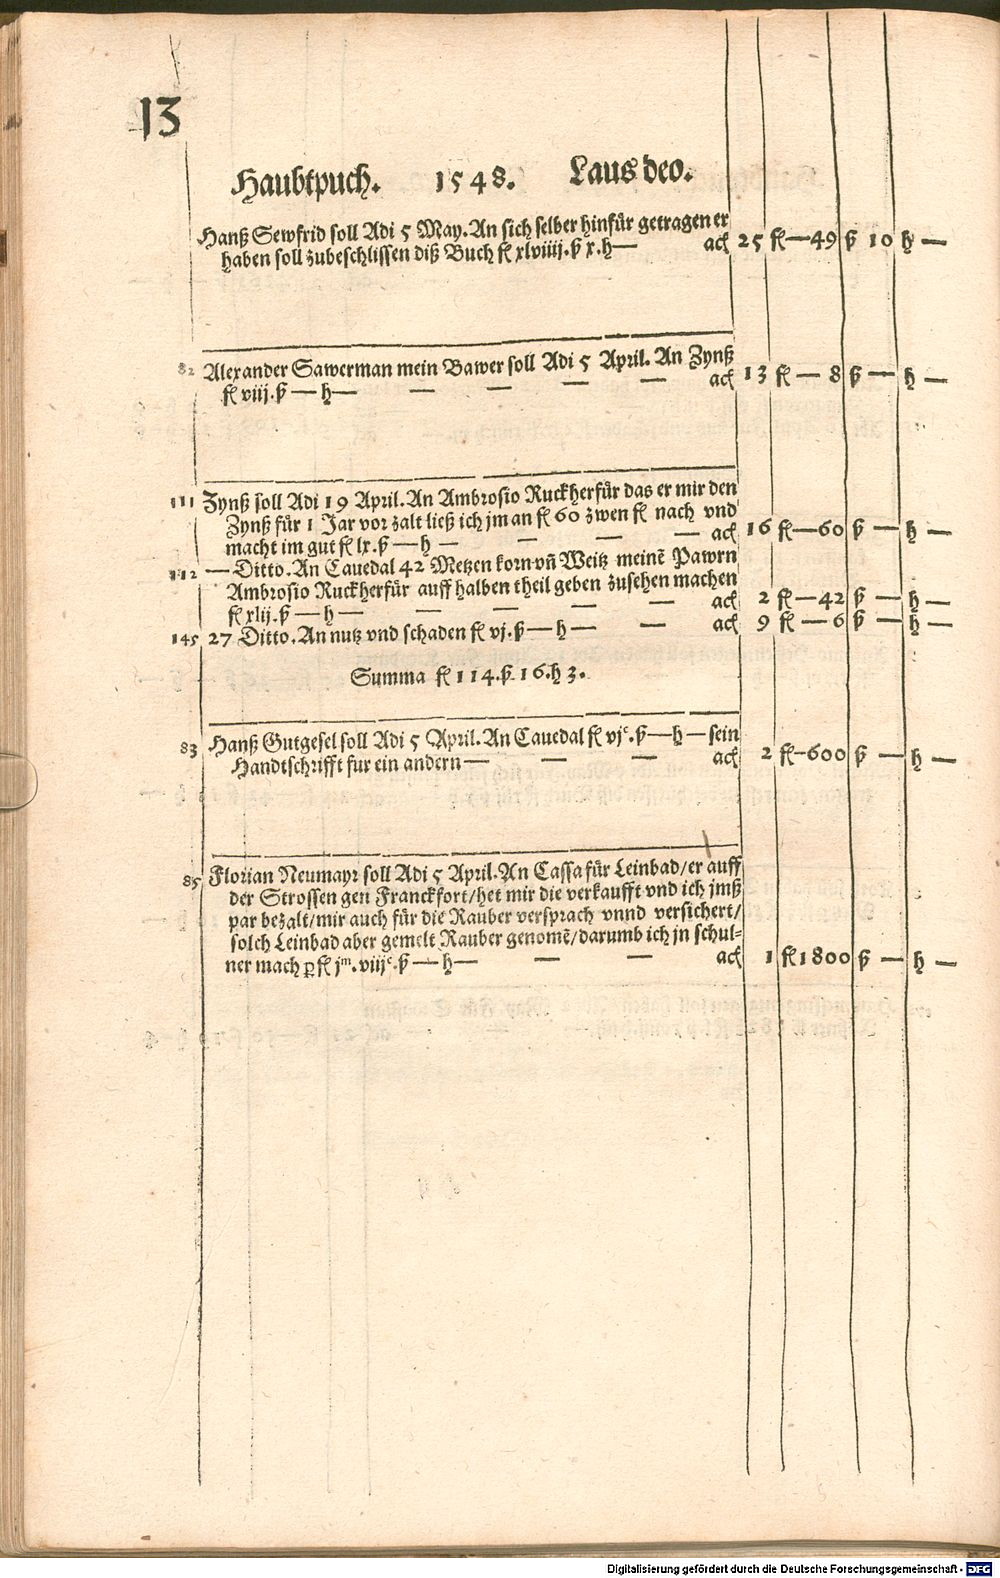 13
Haubtpuch. 1548. Laus deo.
Hanß Sewfrid soll Adi 5 May. An sich selber hinfür getragen er
haben soll zubeschlissen diß Buch fl xlviiij. ß x. h— acł 25 fl—49 ß 10 h —
82 Alexander Sawerman mein Bawer soll Adi 5 April. An Zynß
fl viij. ß — h— — — — — acł 13 fl — 8 ß — h —
111 Zynß soll Adi 19 April. An Ambrosio Ruckherfür das er mir den
Zynß für 1 Jar vor zalt ließ ich jm an fl 60 zwen fl nach vnd
macht im gut fl lx. ß — h — — — — acł 16 fl—60 ß — h —
112 — Ditto. An Cauedal 42 Metzen korn vñ Weitz meinē Pawrn
Ambrosio Ruckherfür auff halben theil geben zusehen machen
fl xlij. ß — h — — — — — acł 2 fl—42 ß — h —
145 27 Ditto. An nutz vnd schaden fl vj. ß — h — — — acł 9 fl — 6 ß — h —
Summa fl 114. ß 16. h 3.
83 Hanß Gutgesel soll Adi 5 April. An Cauedal fl vjᶜ. ß — h — sein
Handtschrifft fur ein andern — — — acł 2 fl—600 ß — h —
85 Florian Neumayr soll Adi 5 April. An Cassa für Leinbad/er auff
der Strossen gen Franckfort/het mir die verkaufft vnd ich jmß
par bezalt/mir auch für die Rauber versprach vnnd versichert/
solch Leinbad aber gemelt Rauber genomē/darumb ich jn schul=
ner mach ꝑ fl jᵐ. viijᶜ. ß — h — — — acł 1 fl 1800 ß — h —
Digitalisierung gefördert durch die Deutsche Forschungsgemeinschaft - DFG